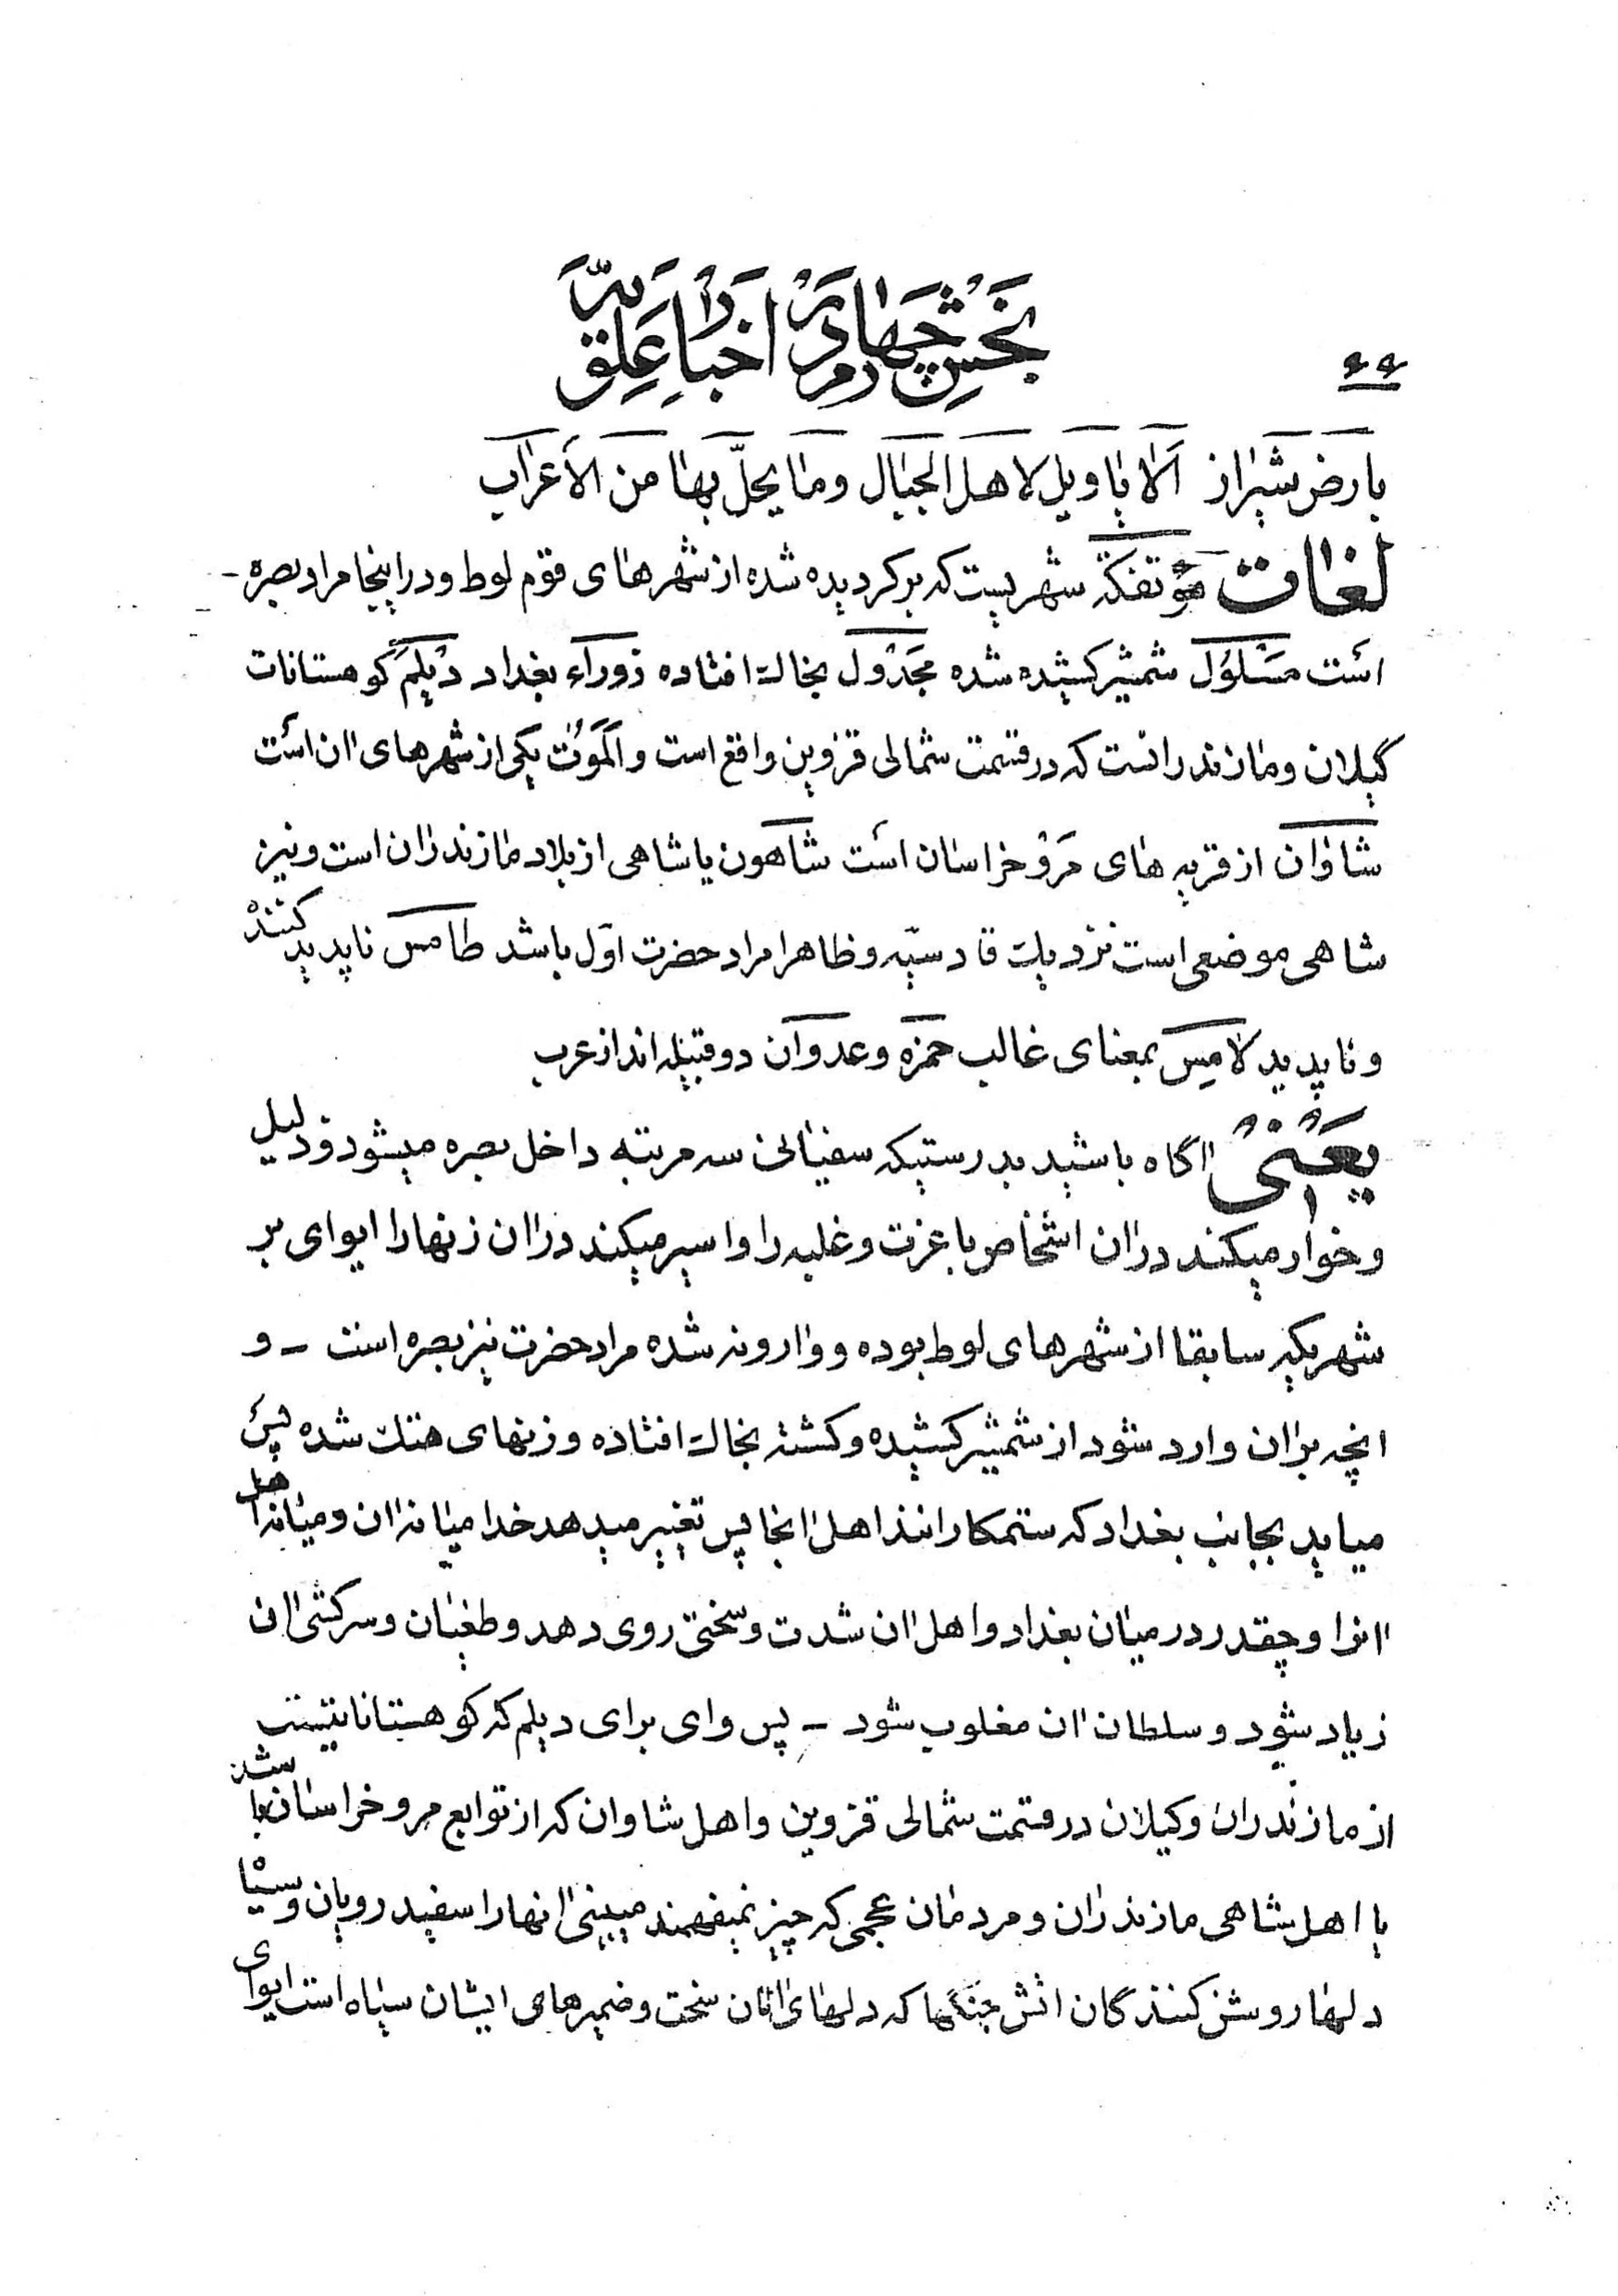 بخش چهارم در اخبار علویه
۶۶
بارض شیراز الا یا ویل لاهل الجبال وما یحلّ بها من الاعراب
لغات مؤتفکة شهریست که برگردیده شده از شهرهای قوم لوط و در اینجا مراد بصره -
است مسلول شمشیر کشیده شده مجدول بخاك افتاده زوراء بغداد دیلم کوهستانات
گیلان و مازندرانست که در قسمت شمالی قزوین واقع است و الموت یکی از شهرهای ان است
شاوان از قریه های مرو خراسان است شاهون یا شاهی از بلاد مازندران است و نیز
شاهی موضعی است نزدیك قادسیّه و ظاهرا مراد حضرت اوّل باشد طامس ناپدید کننده
و ناپدید لامس بمعنای غالب حمزه و عدوان دو قبیله اند از عرب
یعنی اگاه باشید بدرستیکه سفیانی سه مرتبه داخل بصره میشود و ذلیل
و خوار میکند در ان اشخاص با عزت و غلبه را و اسیر میکند در ان زنها را ایوای بر
شهریکه سابقا از شهرهای لوط بوده و وارونه شده مراد حضرت نیز بصره است - و
انچه بر ان وارد شود از شمشیر کشیده و کشته بخاك افتاده و زنهای هتك شده پس
میاید بجانب بغداد که ستمکارانند اهل انجا پس تغییر میدهد خدا میانه ان و میانه اهل
انرا و چقدر در میان بغداد و اهل ان شدت و سختی روی دهد و طغیان و سرکشی ان
زیاد شود و سلطان ان مغلوب شود - پس وای برای دیلم که کوهستاناتیست
از مازندران و کیلان در قسمت شمالی قزوین و اهل شاوان که از توابع مرو خراسان باشد
یا اهل شاهی مازندران و مردمان عجمی که چیز نمیفهمند میبینی انها را سفید رویان و سیاه
دلها روشن کنندگان اتش جنگها که دلهای انان سخت و ضمیرهای ایشان سیاه است ایوای